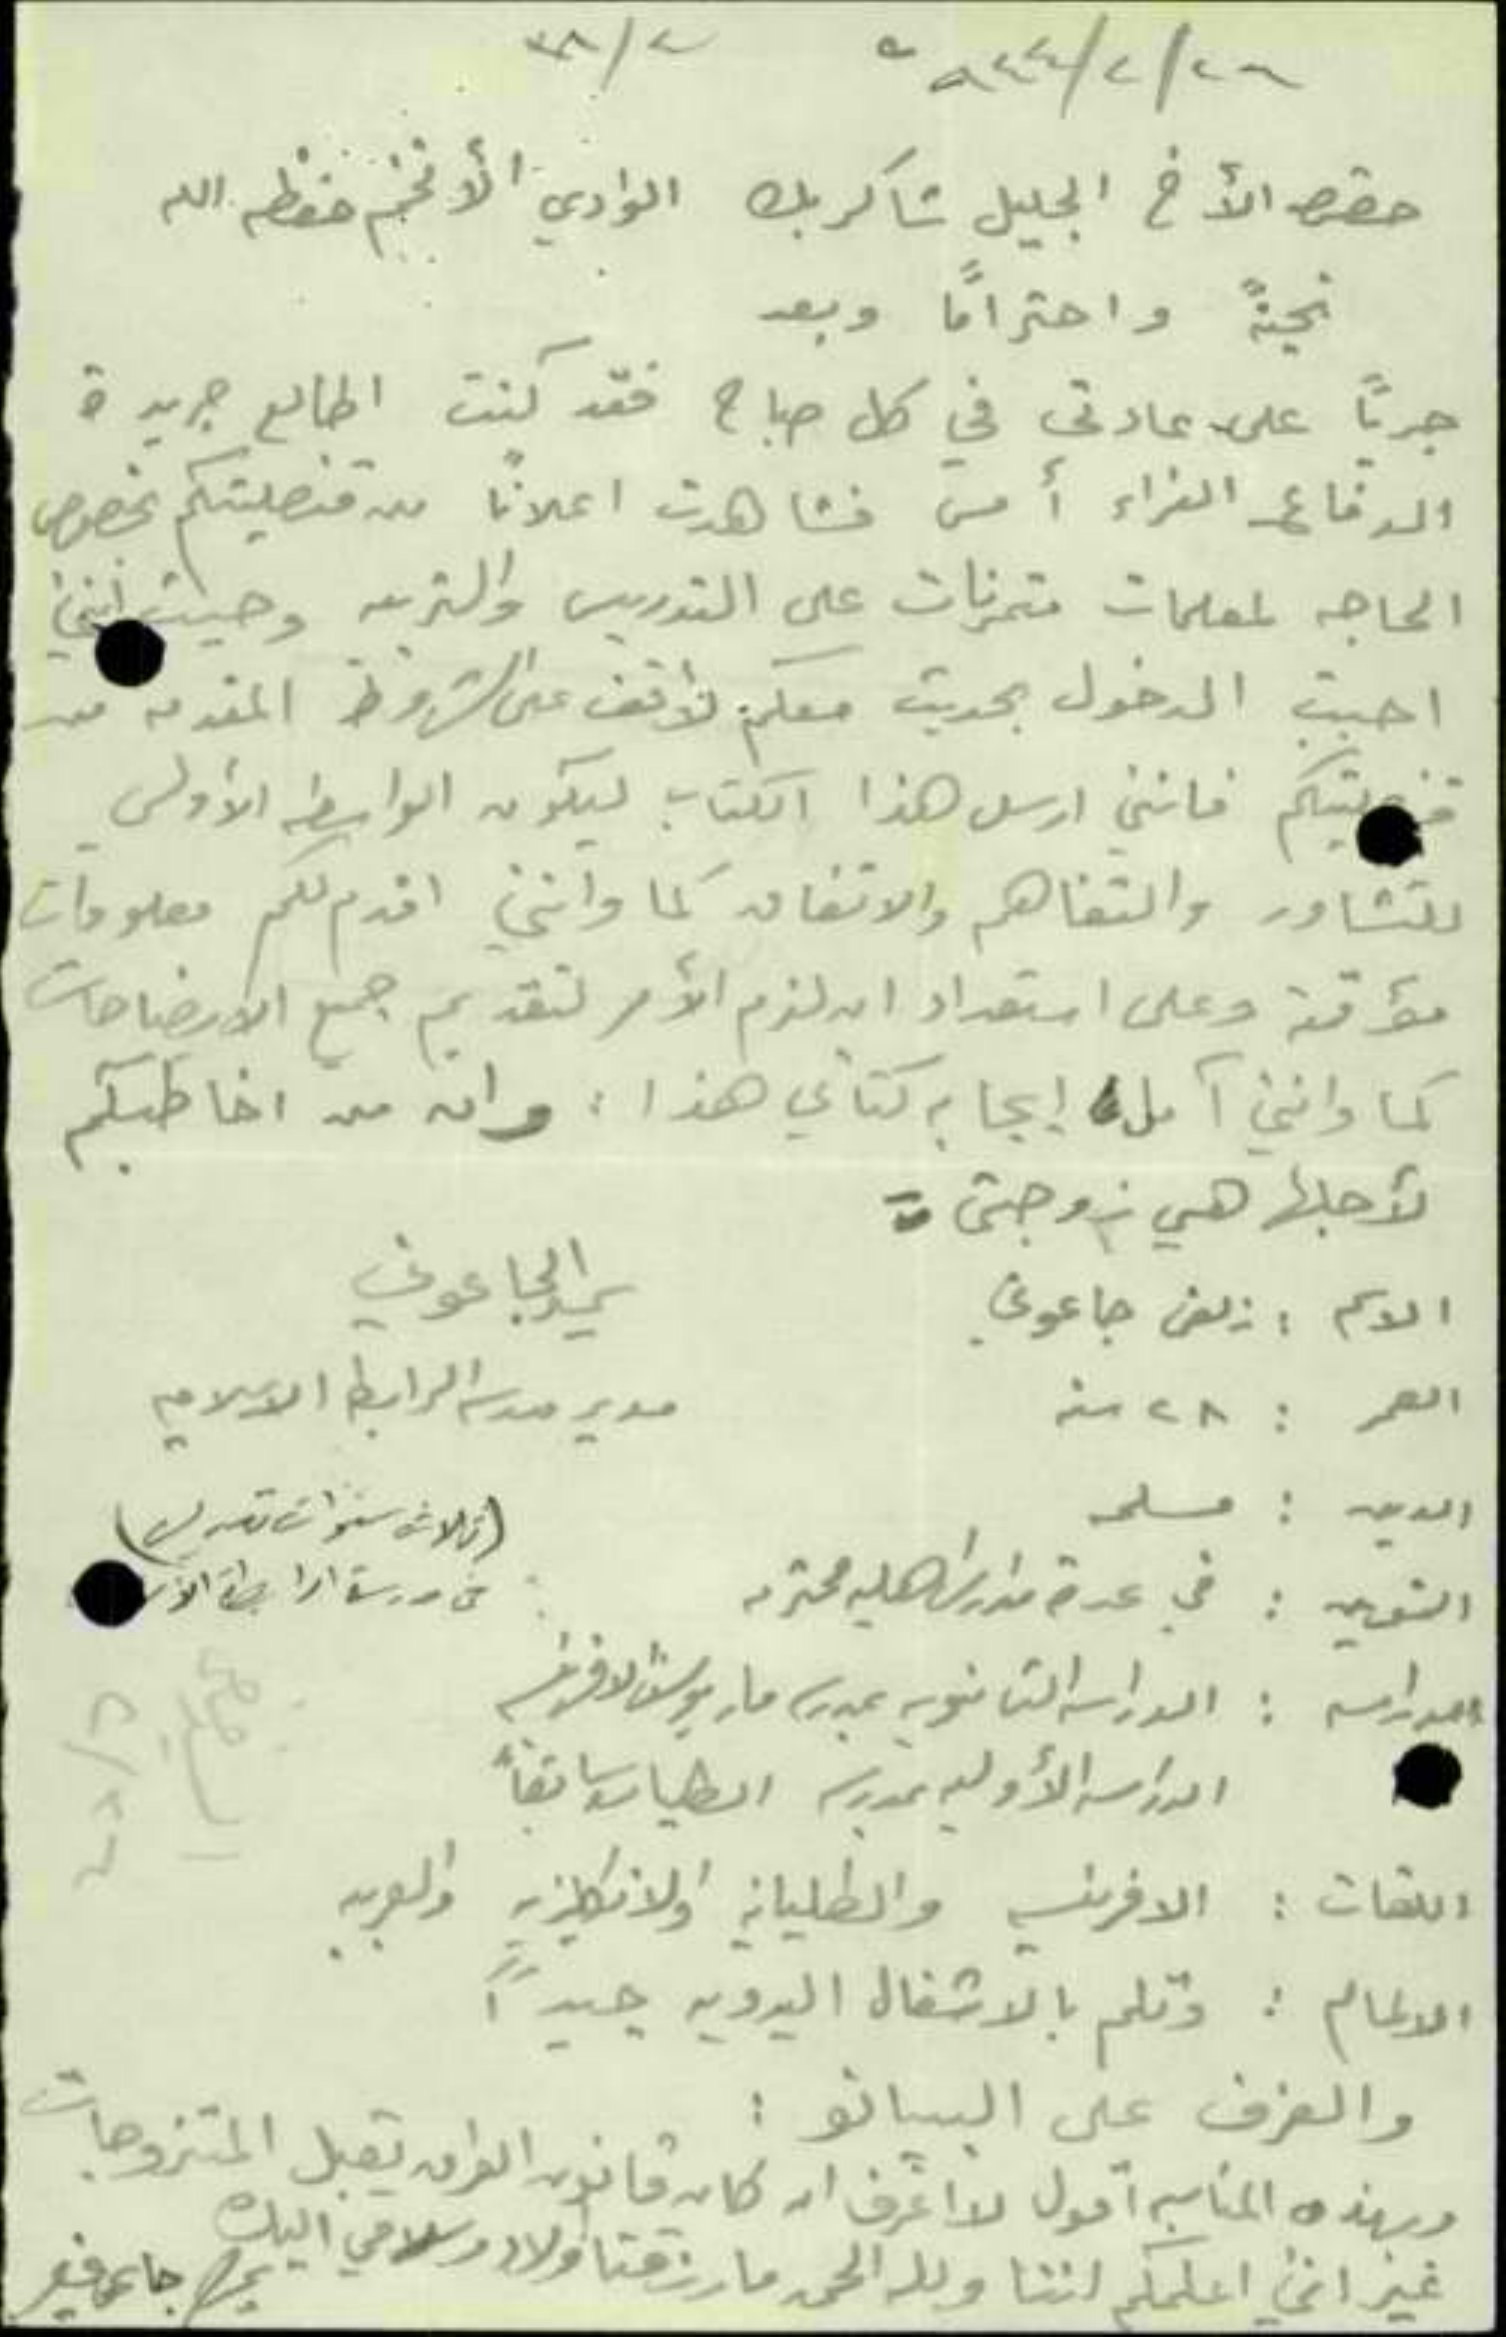 حضرة الأخ الجليل شاكر بك الوادي الأفخم حفظه الله
تحيةً واحترامًا وبعد
جريًا على عادتي في كل صباح فقد كنت اطالع جريدة
الدفاع الغراء أمس فشاهدت اعلانًا من قنصليتكم بخصوص
الحاجه لمعلمات متمرنات على التدريس والتربيه وحيث انني
احببت الدخول بحديث معكم لأقف على الشروط المقدمه من
قنصليتكم فانني ارسل هذا الكتاب ليكون الواسطه الأولى
للتشاور والتفاهم والاتفاق كما وانني اقدم لكم معلومات
مؤقته وعلى استعداد ان لزم الأمر لتقديم جميع الايضاحات
كما وانني آمل إيجابه كتابي هذا : وان من اخاطبكم
لأجلها هي زوجتي =
الجاعوني
الاسم : زلفى جاعوني
مدير مدرسة الرابطه الاسلاميه
العمر : ٢٨ سنه
الدين : مسلمه
(ثلاث سنوات تدريس)
في مدرسة الرابطة
التمرين : في عدة مدارس اهليه محترمه
الدراسه : الدراسه الثانويه بمدرسه مار يوسف الافرنسيه
الدراسه الأوليه بمدرسه الطليان سابقاً
اللغات : الافرنسيه والطليانيه والانكليزيه والعربيه
الالمام : وتلم بالاشغال اليدويه جيدًا
والعزف على البيانو :
وبهذه المناسبه أقول لا أعرف ان كان قانون العراق يقبل المتزوجات
غير انني اعلمكم اننا ولله الحمد ما رزقنا اولاد وسلامي اليك